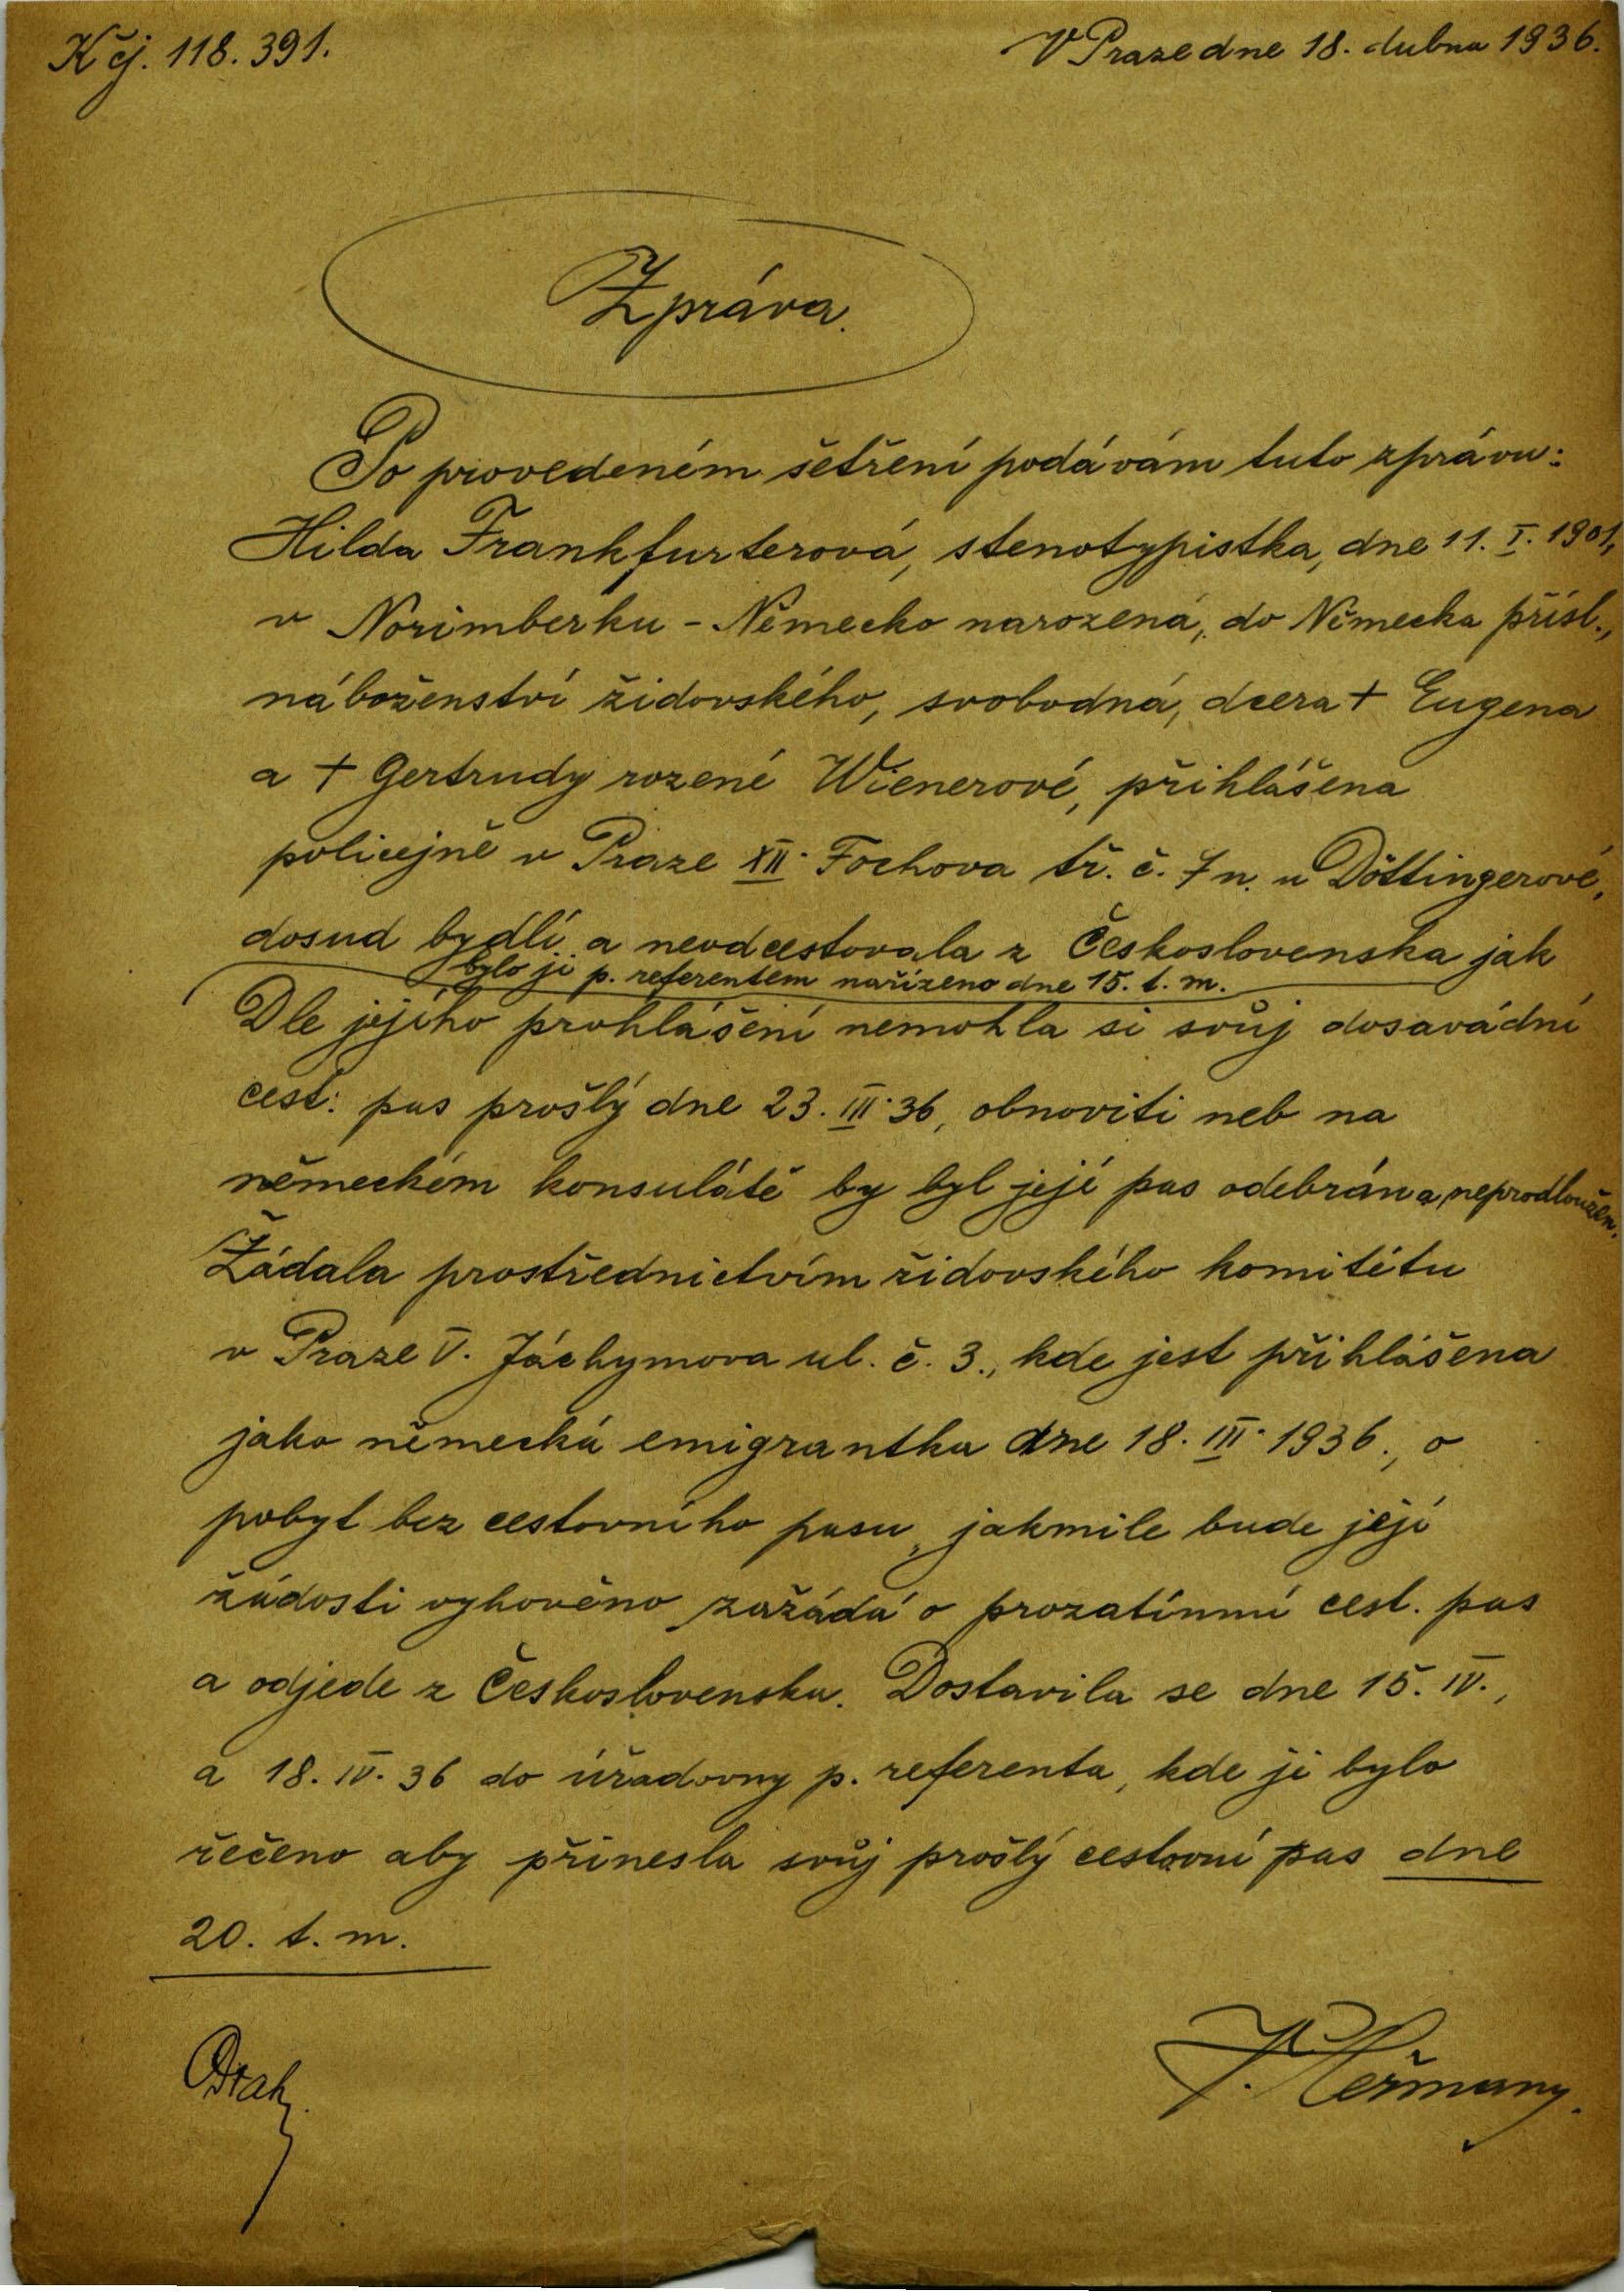 K čj. 118.391.
V Praze dne 18. dubna 1936.
Zpráva.
Po provedeném šetření podávám tuto zprávu:
Hilda Frankfurterová, stenotypistka, dne 11. I. 1901,
v Norimberku - Německo narozená, do Německa přísl.,
náboženství židovského, svobodná, dcera + Eugena
a + Gertrudy rozené Wienerové, přihlášena
policejně v Praze XII. Fochova tř. č. 7 n. u Döttingerové,
dosud bydlí a neodcestovala z Československa jak
bylo jí p. referentem nařízeno dne 15. t. m.
Dle jejího prohlášení nemohla si svůj dosavádní
cest. pas prošlý dne 23. III. 36, obnoviti neb na
německém konsulátě by byl její pas odebrán a neprodloužen.
Žádala prostřednictvím židovského komitétu
v Praze V. Jáchymova ul. č. 3., kde jest přihlášena
jako německá emigrantka dne 18. III. 1936., o
pobyt bez cestovního pasu, jakmile bude její
žádosti vyhověno zažádá o prozatímní cest. pas
a odjede z Československa. Dostavila se dne 15. IV.,
a 18. IV. 36 do úřadovny p. referenta, kde ji bylo
řečeno aby přinesla svůj prošlý cestovní pas dne
20. t. m.